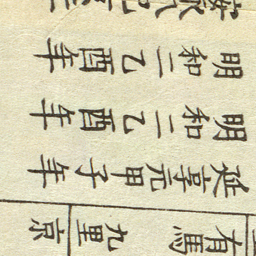 有馬 九里 京
延享元甲子年
明和二乙酉年
明和二乙酉年